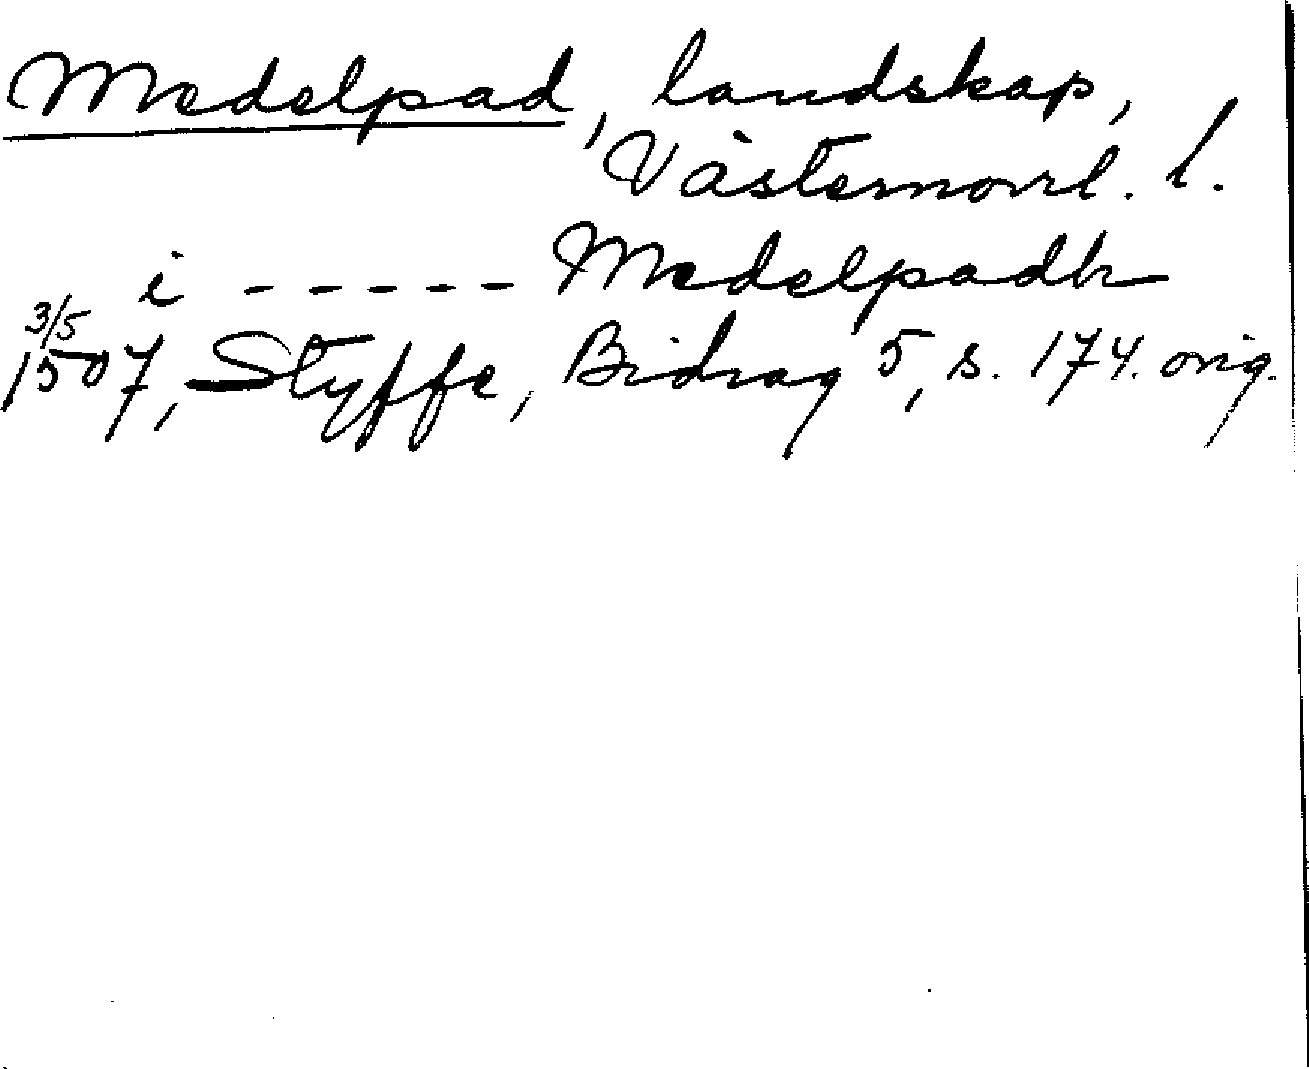 Medelpad, landskap,
Västernorrl. l.
i ----- Medelpadh
3/5
1507, Styffe, Bidrag 5, s. 174. orig.